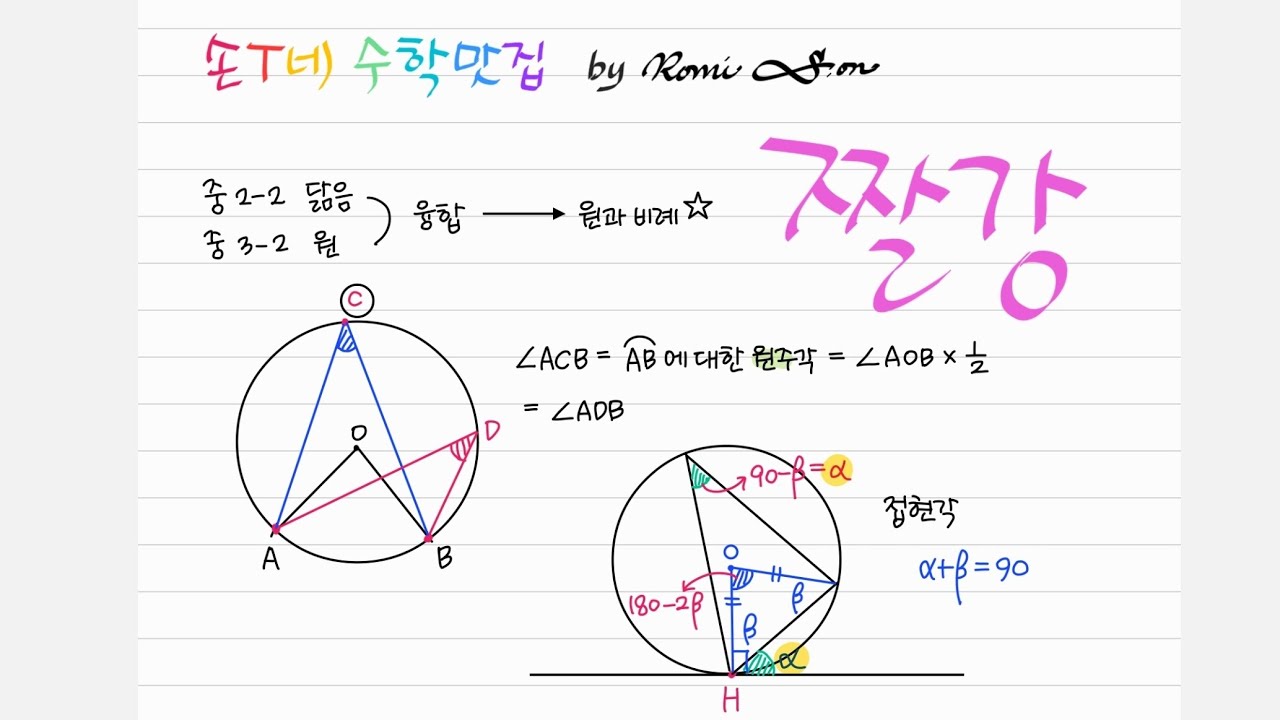 손T네 수학맛집 by Romi Son
짤강
중 2-2 닮음
중 3-2 원
융합 → 원과 비례☆
C
∠ACB = AB에 대한 원주각 = ∠AOB × 1/2
= ∠ADB
O
D
A
B
90-β=α
접현각
α+β=90
O
180-2β
β
β
α
H